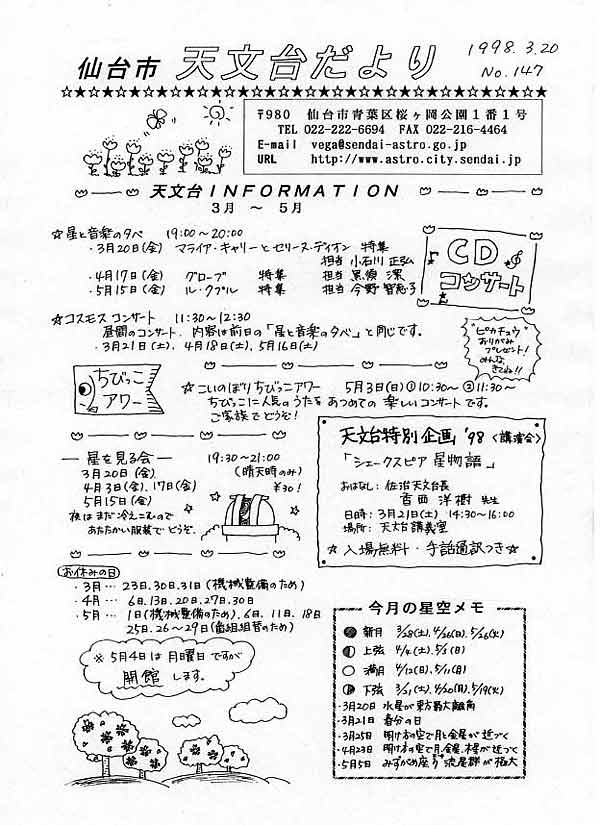 仙台市 天文台だより 1998.3.20
No.147
〒980 仙台市青葉区桜ヶ岡公園1番1号
TEL 022-222-6694 FAX 022-216-4464
E-mail vega@sendai-astro.go.jp
URL http://www.astro.city.sendai.jp
天文台INFORMATION
3月 ～ 5月
☆星と音楽の夕べ 19:00～20:00
・3月20日(金) マライア・キャリーとセリーヌ・ディオン 特集
担当 小石川 正弘
・4月17日(金) グローブ 特集 担当 黒須 潔
・5月15日(金) ル・クプル 特集 担当 今野 智恵子
CD
コンサート
☆コスモス コンサート 11:30～12:30
昼間のコンサート、内容は前日の「星と音楽の夕べ」と同じです。
・3月21日(土)、4月18日(土)、5月16日(土)
"ピカチュウ"
おりがみ
プレゼント!
みんな
きてね!!
ちびっこ
アワー
☆こいのぼりちびっこアワー 5月3日(日)①10:30～ ②11:30～
ちびっこに人気のうたをあつめての楽しいコンサートです。
ご家族でどうぞ!
― 星を見る会 ― 19:30～21:00
3月20日(金)、 (晴天時のみ)
4月3日(金)、17日(金) ¥30!
5月15日(金)
夜はまだ冷えこむので
あたたかい服装でどうぞ。
天文台特別企画'98〈講演会〉
「シェークスピア星物語」
おはなし: 佐治天文台長
香西 洋樹 先生
日時: 3月21日(土) 14:30～16:00
場所: 天文台講義室
☆入場無料・手話通訳つき☆
お休みの日
・3月… 23日、30日、31日(機械整備のため)
・4月… 6日、13日、20日、27日、30日
・5月… 1日(機械整備のため)、6日、11日、18日
25日、26～29日(番組組替のため)
※5月4日は月曜日ですが
開館します。
今月の星空メモ
新月 3/28(土)、4/26(日)、5/26(火)
上弦 4/4(土)、5/3(日)
満月 4/12(日)、5/11(月)
下弦 3/21(土)、4/20(月)、5/19(火)
・3月20日 水星が東方最大離角
・3月21日 春分の日
・3月25日 明け方の空で月と金星が近づく
・4月23日 明け方の空で月、金星、木星が近づく
・5月5日 みずがめ座 流星群が極大